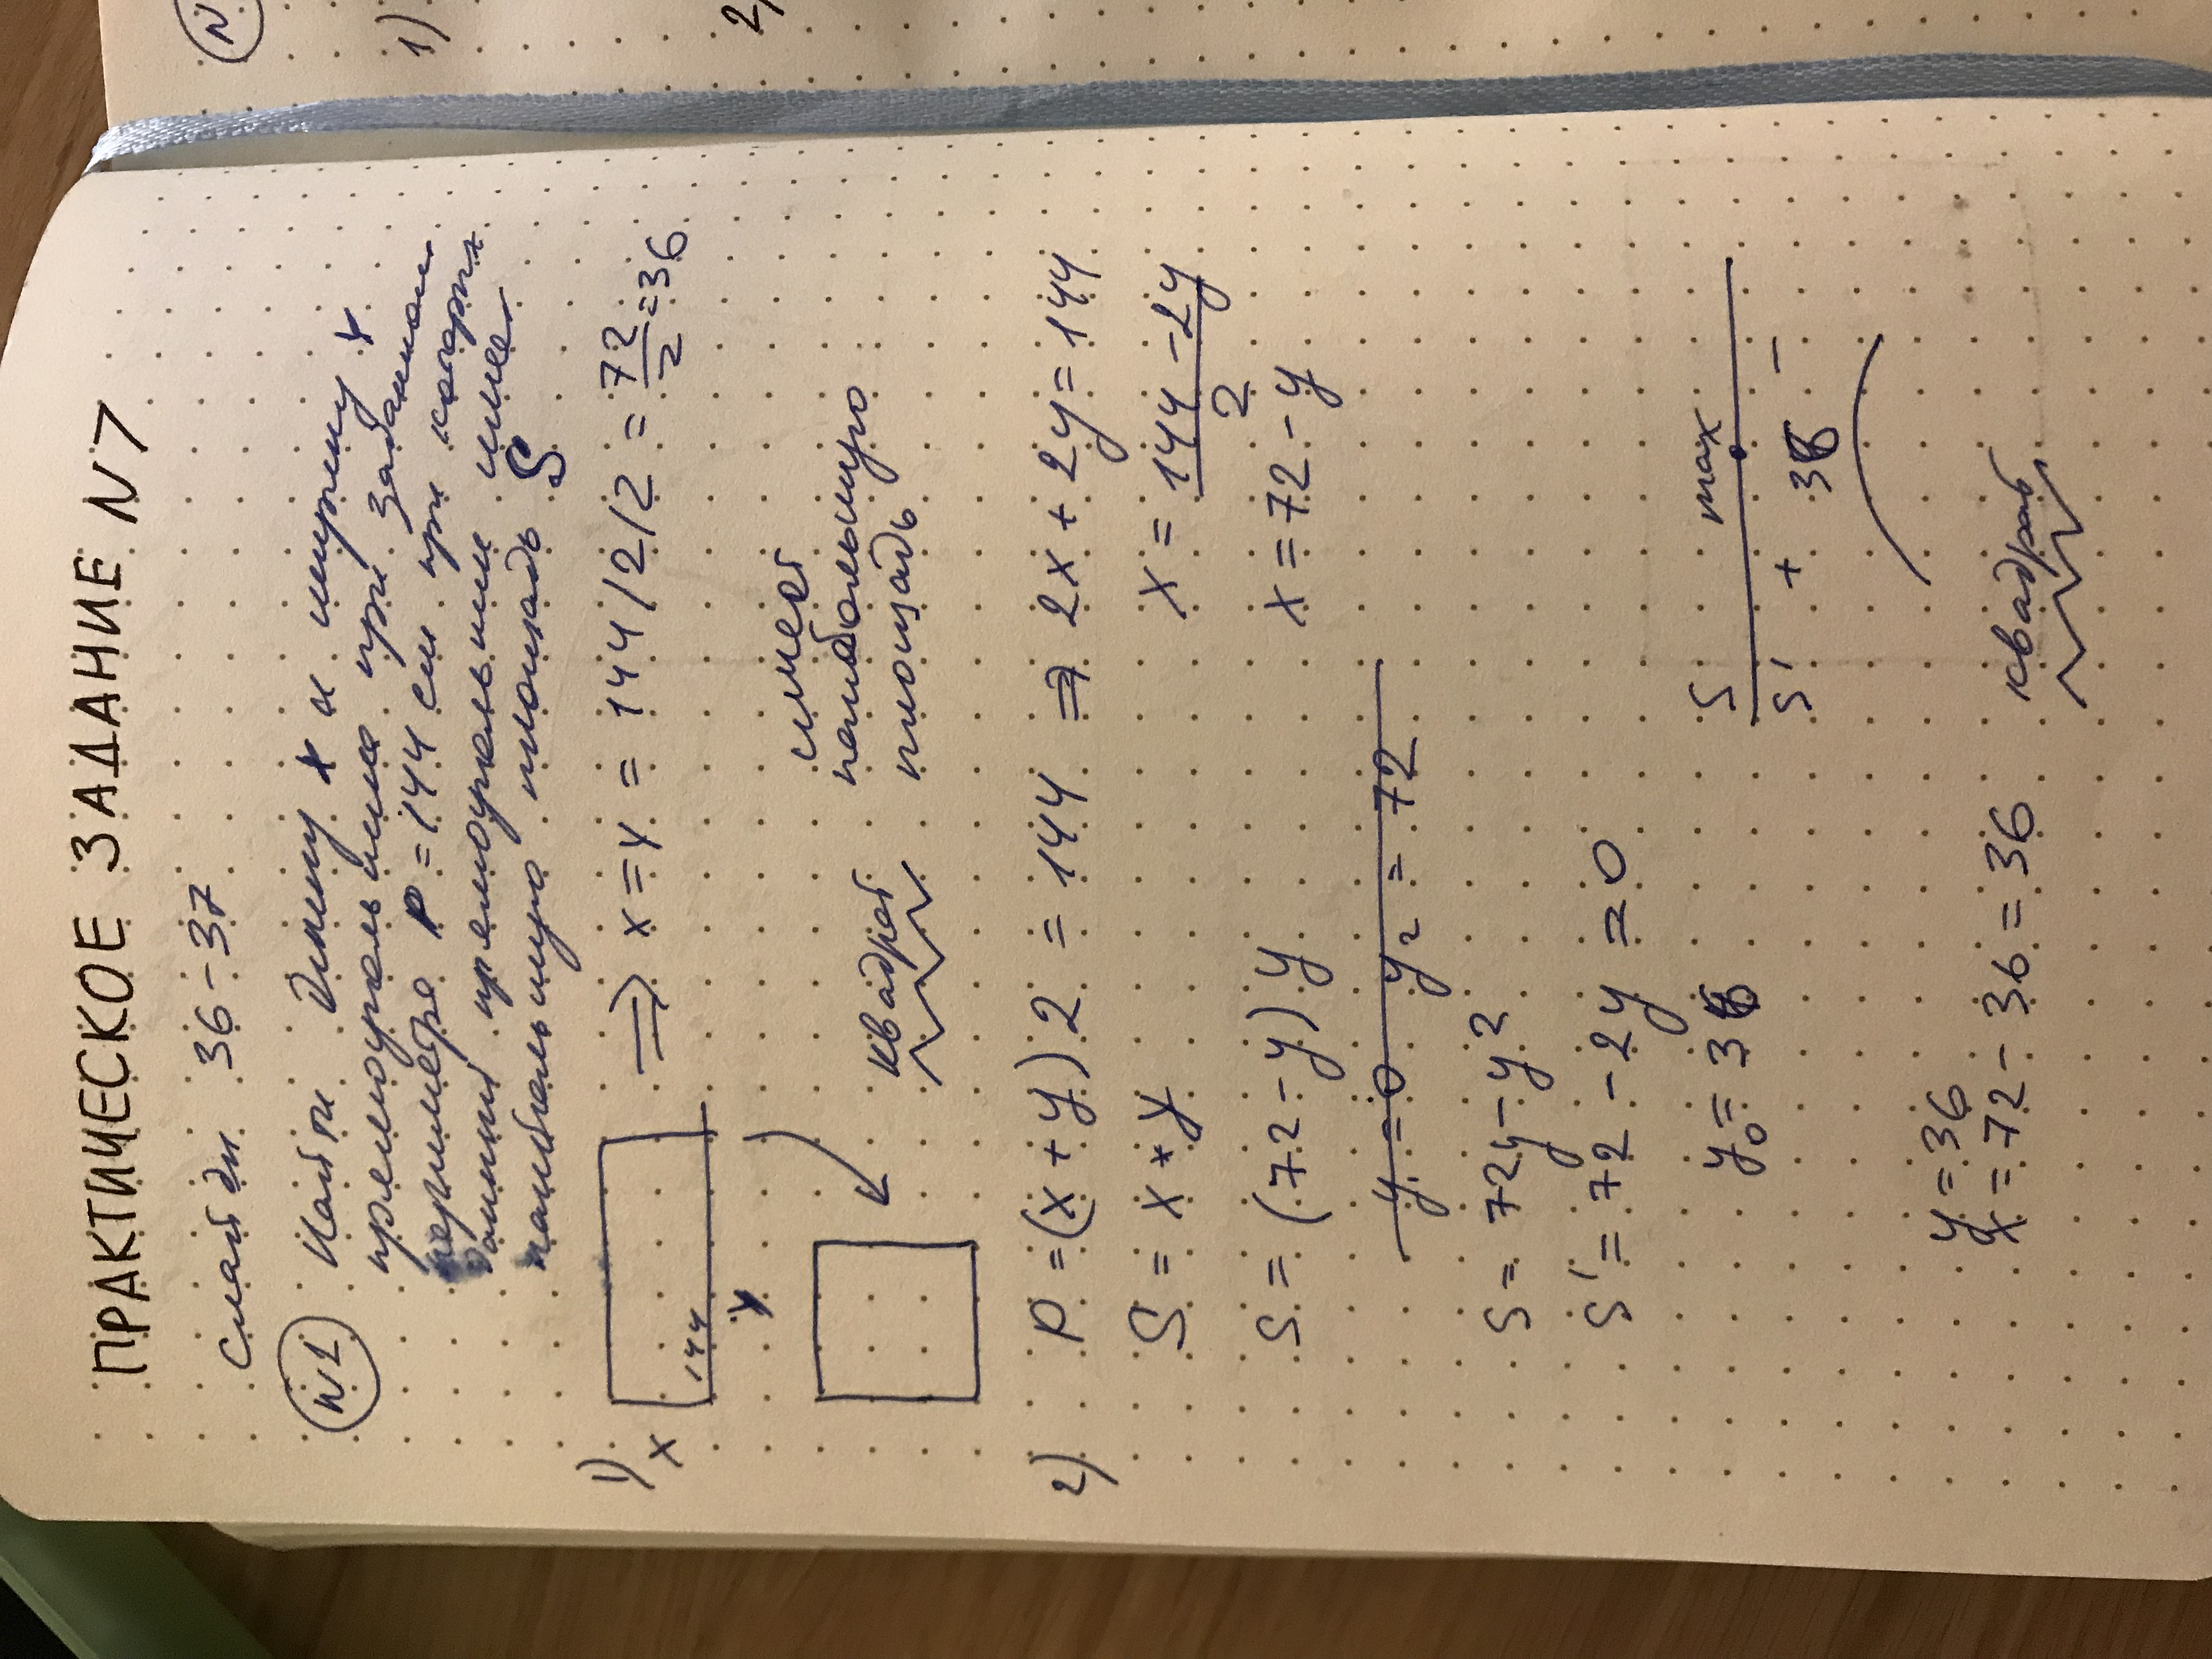 ПРАКТИЧЕСКОЕ ЗАДАНИЕ N7
слайды 36-37
N1 Найти длину x и ширину y
прямоугольника при заданном
периметре P = 144 см при которых
данный прямоугольник имеет
наибольшую площадь S
1)
x
144
y
=> x = y = 144/2/2 = 72/2 = 36
квадрат
имеет
наибольшую
площадь
2) P = (x + y) 2 = 144 => 2x + 2y = 144
S = x * y
x = (144 - 2y)/2
S = (72 - y) y
x = 72 - y
y₁ = 0 y₂ = 72
S = 72y - y²
S' = 72 - 2y = 0
y₀ = 36
S max
S' + 36 -
y = 36
x = 72 - 36 = 36 квадрат
N
1)
2)